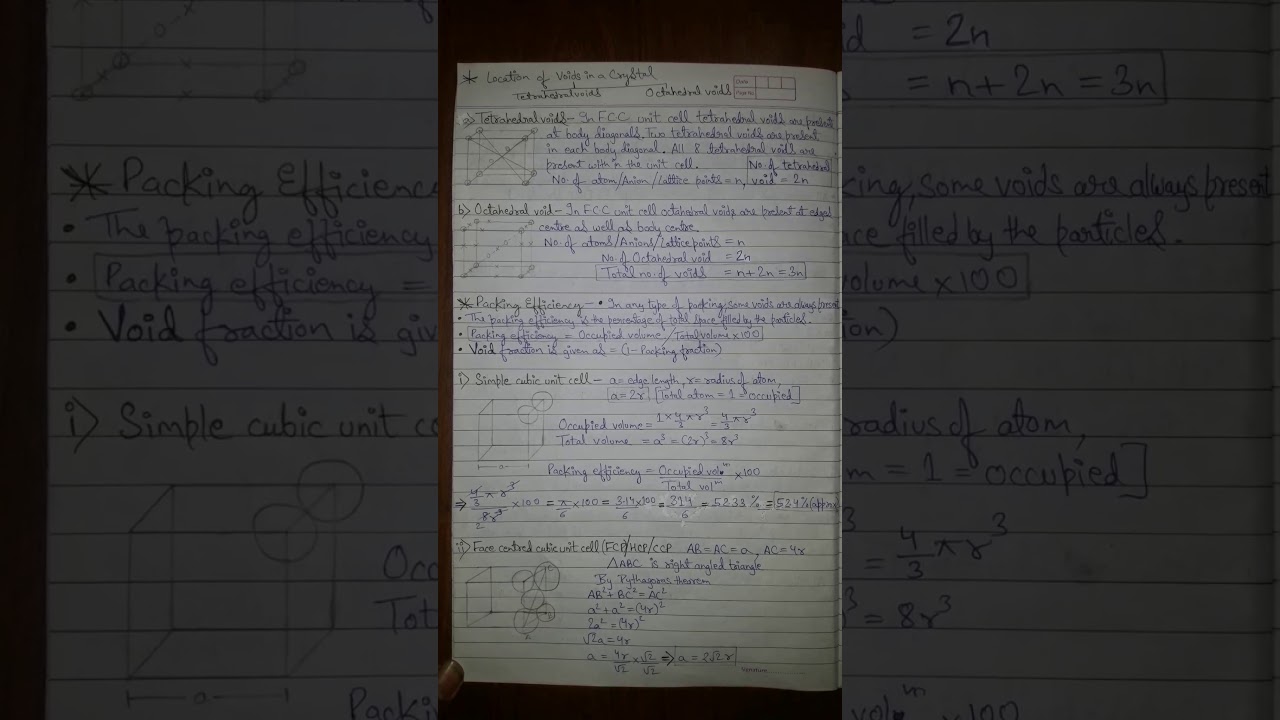 * Location of Voids in a Crystal
Tetrahedral voids Octahedral voids
Date
Page No.
a) Tetrahedral voids - In FCC unit cell tetrahedral voids are present
at body diagonals. Two tetrahedral voids are present
in each body diagonal. All 8 tetrahedral voids are
present with n the unit cell. No. of tetrahedral
No. of atom/Anion/Lattice points = n, void = 2n
b) Octahedral void - In FCC unit cell octahedral voids are present at edges
centre as well as body centre.
No. of atoms/Anions/Lattice points = n
No. of Octahedral void = 2n
Total no. of voids = n+2n = 3n
* Packing Efficiency - • In any type of packing, some voids are always present
• The packing efficiency is the percentage of total space filled by the particles.
• Packing efficiency = Occupied volume / Total volume × 100
• Void fraction is given as = (1 - Packing fraction)
i) Simple cubic unit cell - a = edge length, r = radius of atom,
a = 2r [Total atom = 1 = occupied]
Occupied volume = 1 × 4/3 πr³ = 4/3 πr³
Total volume = a³ = (2r)³ = 8r³
a
Packing efficiency = Occupied volᵐ/Total volᵐ × 100
⇒ 4/3 πr³ / 8r³ × 100 = π/6 × 100 = 3.14×100/6 = 314/6 = 52.33 % = 52.4% (approx
2
ii) Face centred cubic unit cell (FCP/HCP/CCP AB = AC = a, AC = 4r
△ABC is right angled triangle
By Pythagoras theorem
AB² + BC² = AC²
a² + a² = (4r)²
2a² = (4r)²
√2a = 4r
a = 4r/√2 × √2/√2 ⇒ a = 2√2 r